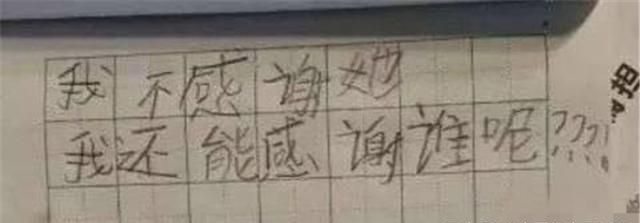 我不感谢她
我还能感谢谁呢????